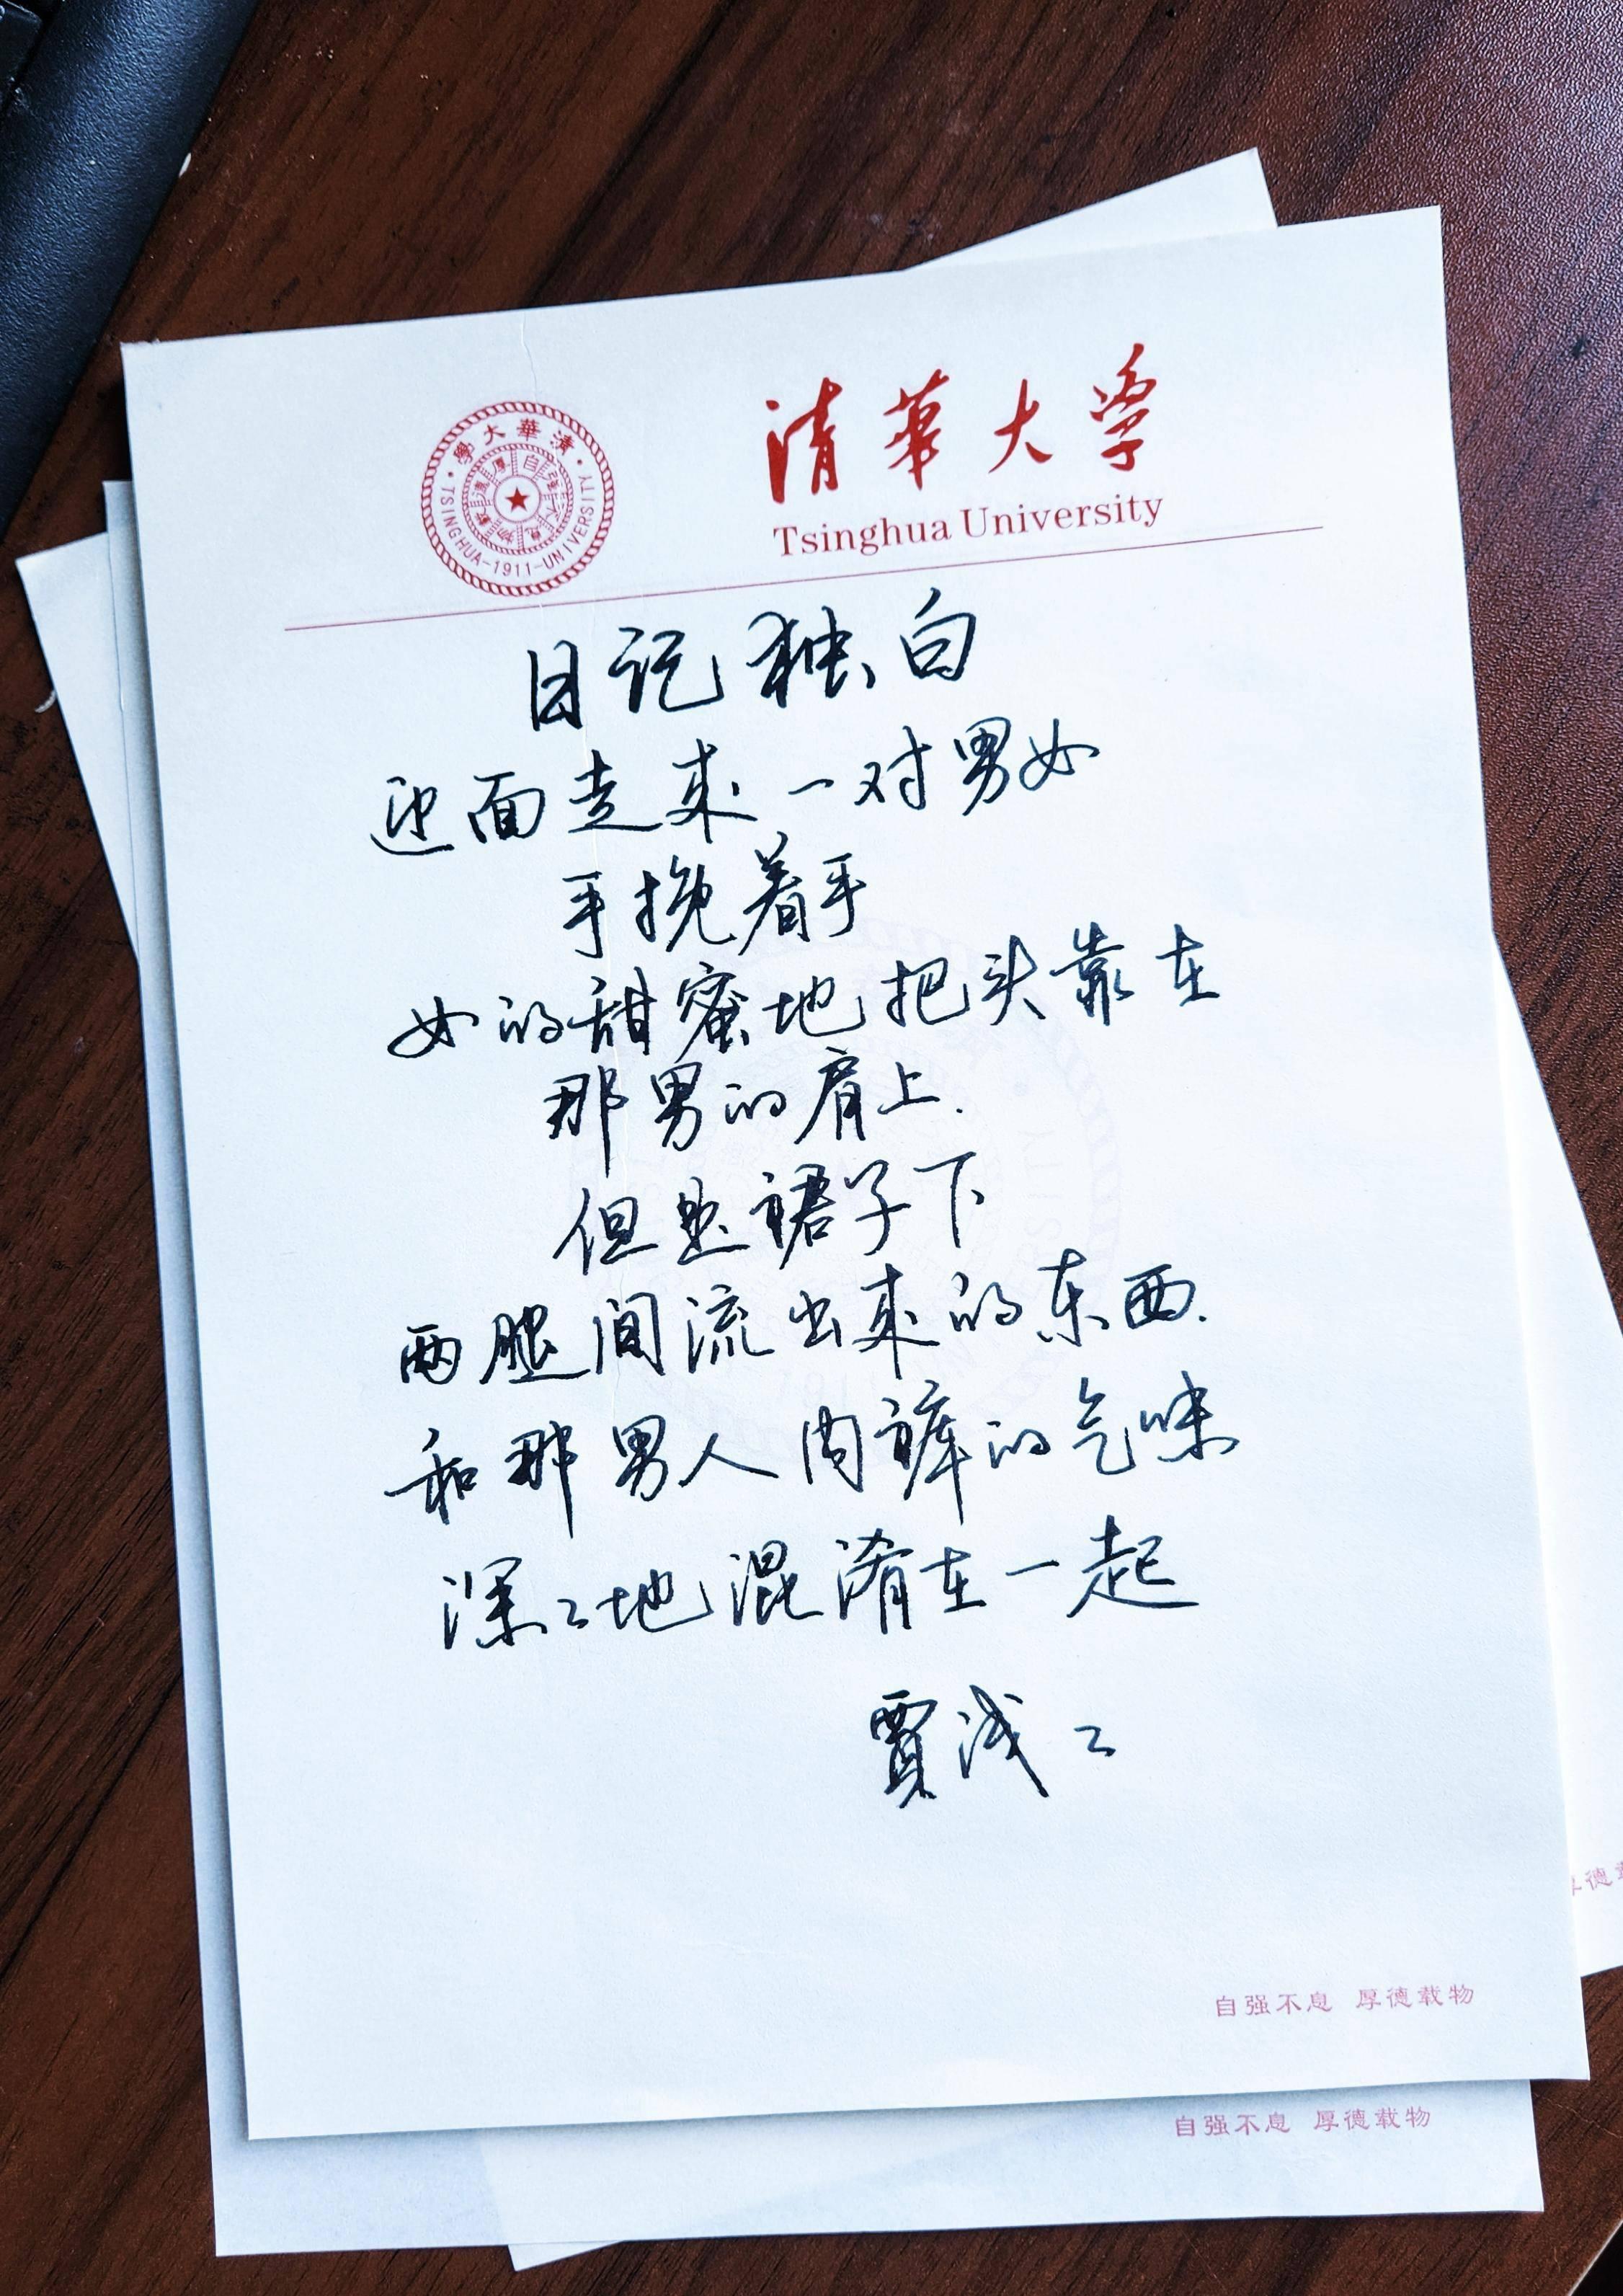 清華大学
Tsinghua University
清華大學
TSINGHUA-1911-UNIVERSITY
自强不息 厚德载物
日记独白
迎面走来一对男女
手挽着手
女的甜蜜地把头靠在
那男的肩上.
但是裙子下
两腿间流出来的东西.
和那男人内裤的气味
深〻地混淆在一起
贾浅〻
自强不息 厚德载物
自强不息 厚德载物
厚德载